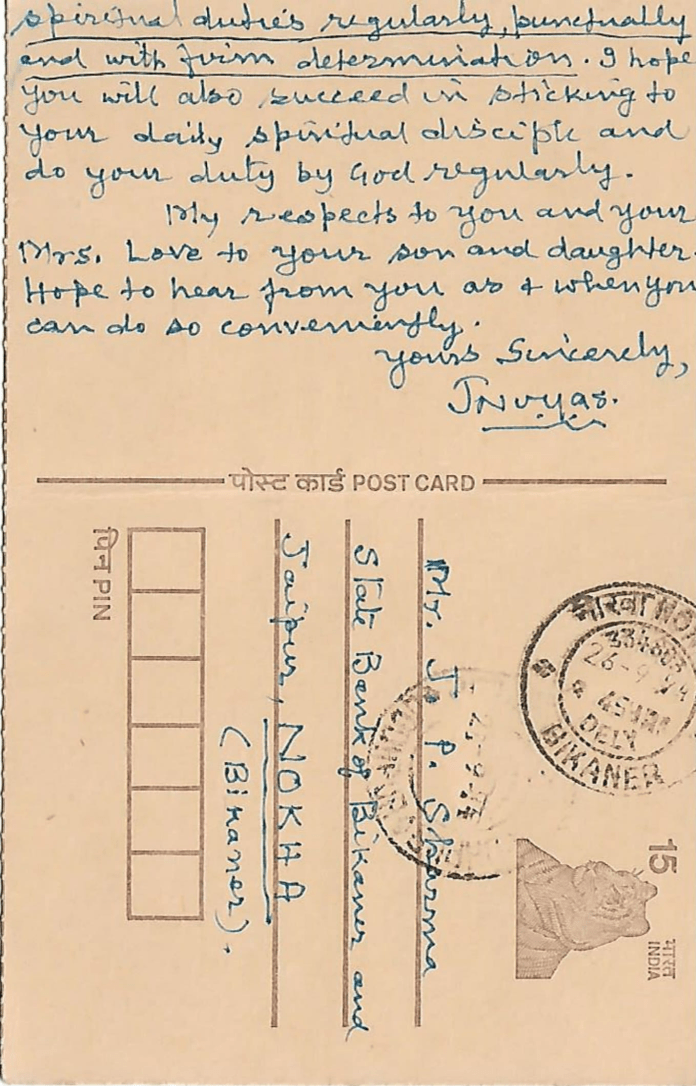 spiritual duties regularly, punctually
and with firm determination. I hope
you will also succeed in sticking to
your daily spiritual disciple and
do your duty by God regularly.
My respects to you and your
Mrs. Love to your son and daughter.
Hope to hear from you as & when you
can do so conveniently.
Yours Sincerely,
JNVyas.
पोस्ट कार्ड POST CARD
पिन PIN
Mr. J. P. Sharma
State Bank of Bikaner and
Jaipur, NOKHA
(Bikaner).
नोखा NOK
334803
26-9
DELY
BIKANER
15
भारत
INDIA